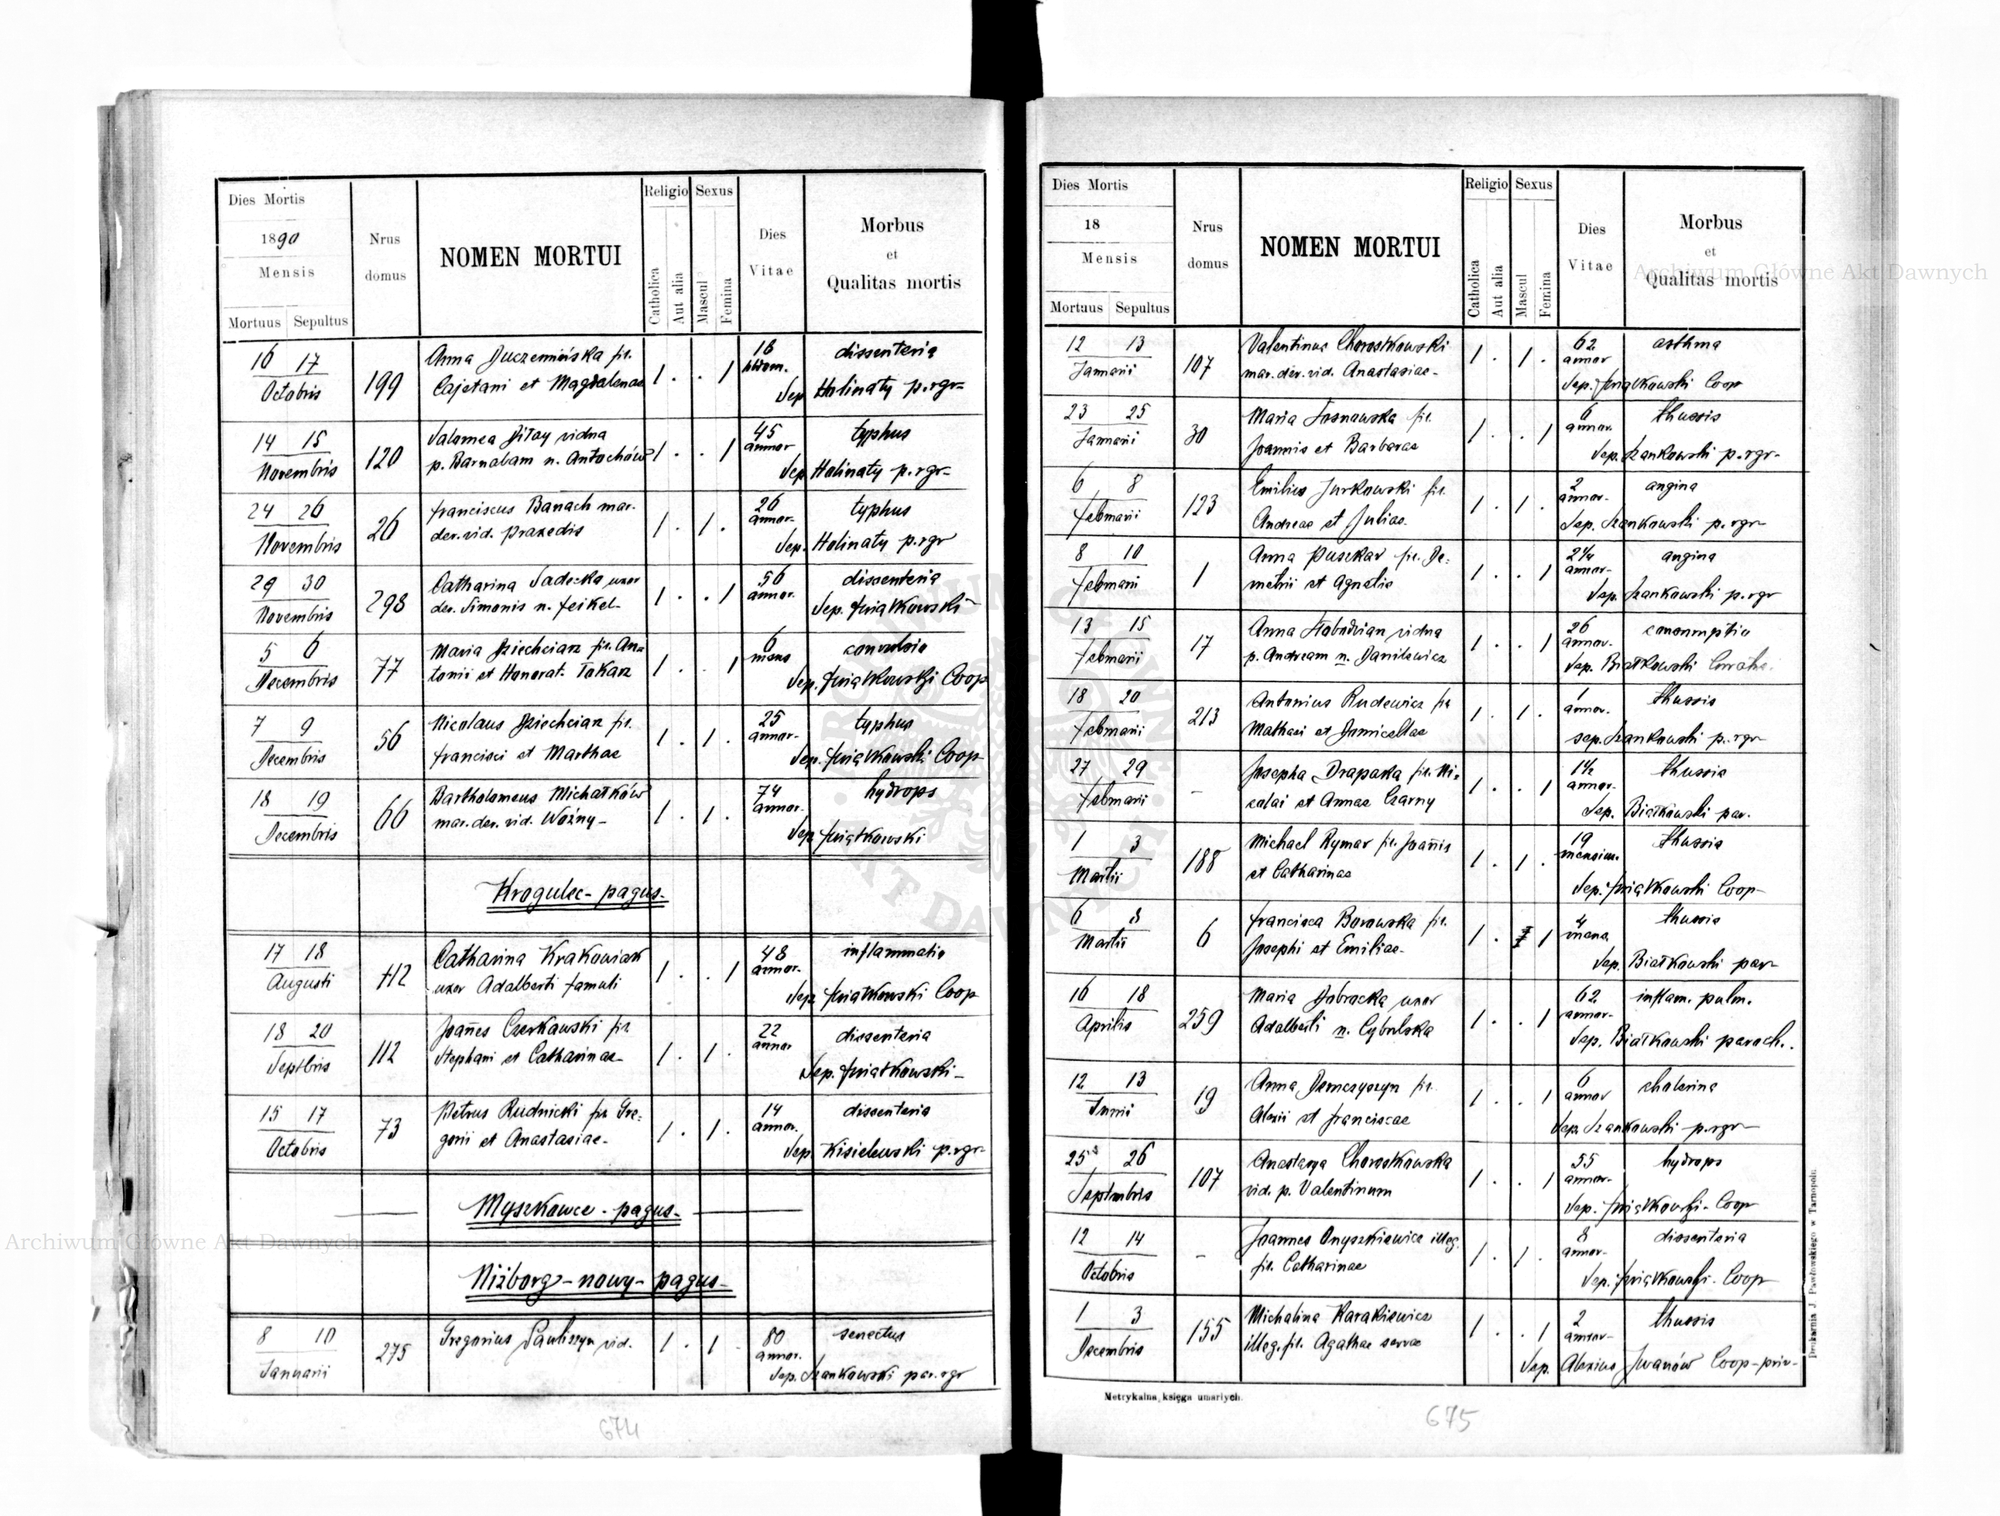 Dies Mortis
1890
Mensis
Mortuus Sepultus
Nrus
domus
NOMEN MORTUI
Religio
Catholica
Aut alia
Sexus
Mascul
Femina
Dies
Vitae
Morbus
et
Qualitas mortis
16 17
Octobris
199
Anna fil.
Cajetani et Magdalenae
1 . . 1
dissenteria
Sep. Holinaty p. rgr-
14 15
Novembris
120
Salomea vidua
p. Barnabam n. Antochów
1 . . 1
45
annor
typhus
Sep. Holinaty p. rgr-
24 26
Novembris
26
Franciscus Banach mar.
der. vid. Praxedis
1 . 1 .
26
annor-
typhus
Sep. Holinaty p. rgr
29 30
Novembris
298
Catharina Sadecka uxor
der. Simonis n. Feikel-
1 . . 1
56
annor.
dissenteria
Sep. Kwiatkowski-
5 6
Decembris
77
Maria Dziechciarz fil. An=
tonii et Honorat. Tokarz
1 . . 1
6
mens
convulsio
Sep. Kwiatkowski Coop
7 9
Decembris
56
Nicolaus Dziechciarz fil.
Francisci et Marthae
1 . 1 .
25
annor-
typhus
Sep. Kwiatkowski Coop
18 19
Decembris
66
Bartholomeus Michałków
mar. der. vid. Woźny-
1 . 1 .
74
annor.
hydrops
Sep Kwiatkowski
Krogulec- pagus-
17 18
Augusti
112
Catharina Krakowiak
uxor Adalberti famuli
1 . . 1
48
annor.
inflammatio
Sep. Kwiatkowski Coop
18 20
Septbris
112
Joañes Czerkawski fil
Stephani et Catharinae-
1 . 1 .
22
annor
dissenteria
Sep. Kwiatkowski-
15 17
Octobris
73
Petrus Rudnicki fil Gre=
gorii et Anastasiae-
1 . 1 .
14
annor.
dissenteria
Sep Kisielewski p. rgr-
Myszkowce - pagus-
Niżborg- nowy- pagus-
8 10
Januarii
275
Gregorius Pauliszyn vid.
1 . 1 .
80
annor.
senectus
Sep. Szankowski par. rgr
674
Dies Mortis
18
Mensis
Mortuus Sepultus
Nrus
domus
NOMEN MORTUI
Religio
Catholica
Aut alia
Sexus
Mascul
Femina
Dies
Vitae
Morbus
et
Qualitas mortis
12 13
Januarii
107
Valentinus Chorostkowski
mar. der. vid. Anastasiae-
1 . 1 .
62
annor
asthma
Sep. Kwiatkowski Coop
23 25
Januarii
30
Maria Sosnowska fil.
Joannis et Barbarae
1 . . 1
6
annor.
thussis
Sep. Szankowski p. rgr-
6 8
Februarii
123
Emilius Jurkowski fil.
Andreae et Juliae.
1 . 1 .
2
annor-
angina
Sep. Szankowski p. rgr-
8 10
Februarii
1
Anna Puszkar fil. De=
metrii et Agnetis
1 . . 1
2¼
annor-
angina
Sep. Szankowski p. rgr
13 15
Februarii
17
Anna vidua
p. Andream n. Danilewicz
1 . . 1
26
annor.
consumptio
Sep. Białkowski
18 20
Februarii
213
Antonius Rudewicz fil
Mathaei et Domicellae
1 . 1 .
1
annor.
thussis
sep. Szankowski p. rgr-
27 29
Februarii
-
Josepha Drapaka fil. Ni=
colai et Annae Czarny
1 . . 1
1½
annor.
thussis
Sep. Białkowski par.
1 3
Martii
188
Michael Rymar fil. Joañis
et Catharinae
1 . 1 .
19
mensium.
thussis
Sep. Kwiatkowski Coop-
6 8
Martii
6
Francisca Borowska fil.
Josephi et Emiliae-
1 . 1
4
mens.
thussis
Sep. Białkowski par-
16 18
Aprilis
259
Maria Dobrocka uxor
Adalberti n. Cybulska
1 . . 1
62
annor-
inflam. pulm.
Sep. Białkowski paroch.
12 13
Junii
19
Anna Demczyszyn fil.
Alexii et Franciscae
1 . . 1
6
annor
cholerina
Sep. Szankowski p. rgr-
25 26
Septembris
107
Anastasya Chorostkowska
vid. p. Valentinum
1 . . 1
55
annor-
hydrops
Sep. Kwiatkowski- Coop
12 14
Octobris
-
Joannes Onyszkiewicz illeg.
fil. Catharinae
1 . 1 .
8
annor-
dissenteria
Sep. Kwiatkowski- Coop
1 3
Decembris
155
Michalina Karakiewicz
illeg. fil. Agathae servae
1 . . 1
2
annor-
thussis
Sep. Alexius Iwanów Coop-priv-
Metrykalna księga umarłych.
Drukarnia J. Pawłowskiego w Tarnopolu
675
Archiwum Główne Akt Dawnych
Archiwum Główne Akt Dawnych
ARCHIWUM GŁÓWNE AKT DAWNYCH